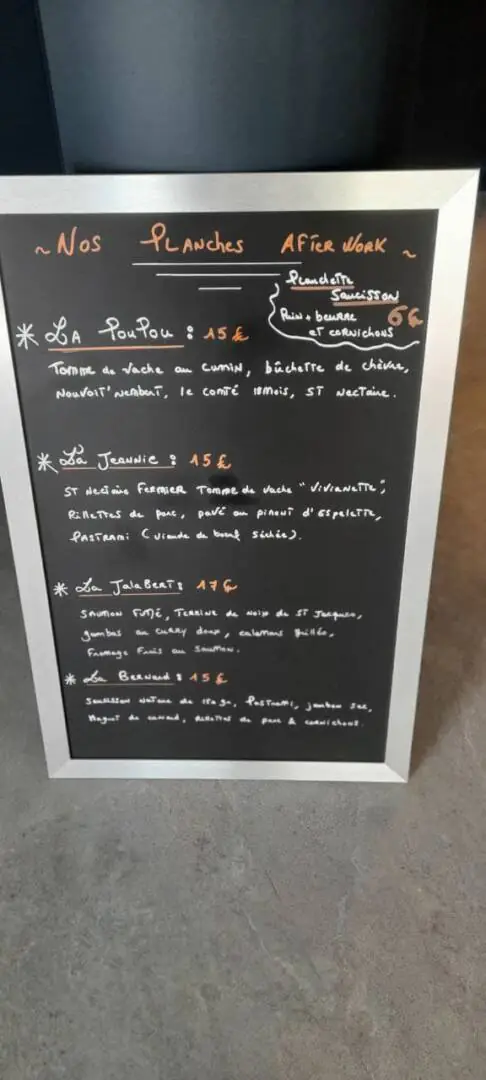 ~ Nos PLANches AFTER WORK ~
Planchette
Saucisson
Pain + beurre 6€
et cornichons
* LA PouPou : 15€
Tomme de vache au cumin, bûchette de chèvre,
le comté 18mois, ST Nectaire.
* La Jeannie : 15€
ST Nectaire Fermier Tomme de vache "Vivianette",
Rillettes de porc, pavé au piment d'Espelette,
PASTRAMI (viande de bœuf séchée).
* La JalaBert : 17€
SAUMON FUMÉ, TERRINE de Noix de ST Jacques,
gambas au curry doux, calamars grillés,
Fromage Frais au Saumon.
* La Bernard : 15€
Saucisson Nature de, PasTrami, jambon sec,
Magret de canard, Rillettes de porc & cornichons.